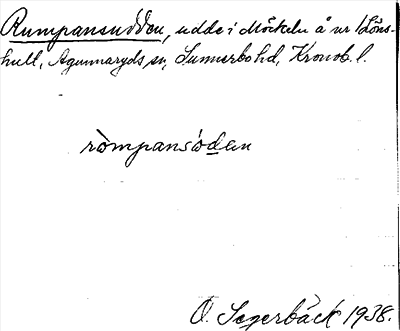 Rumpansudden, udde i Möckeln å nr 1 Löns-
hult, Agunnaryds sn, Sunnerbo hd, Kronob. l.
ròmpansùden
O. Segerbäck 1938.